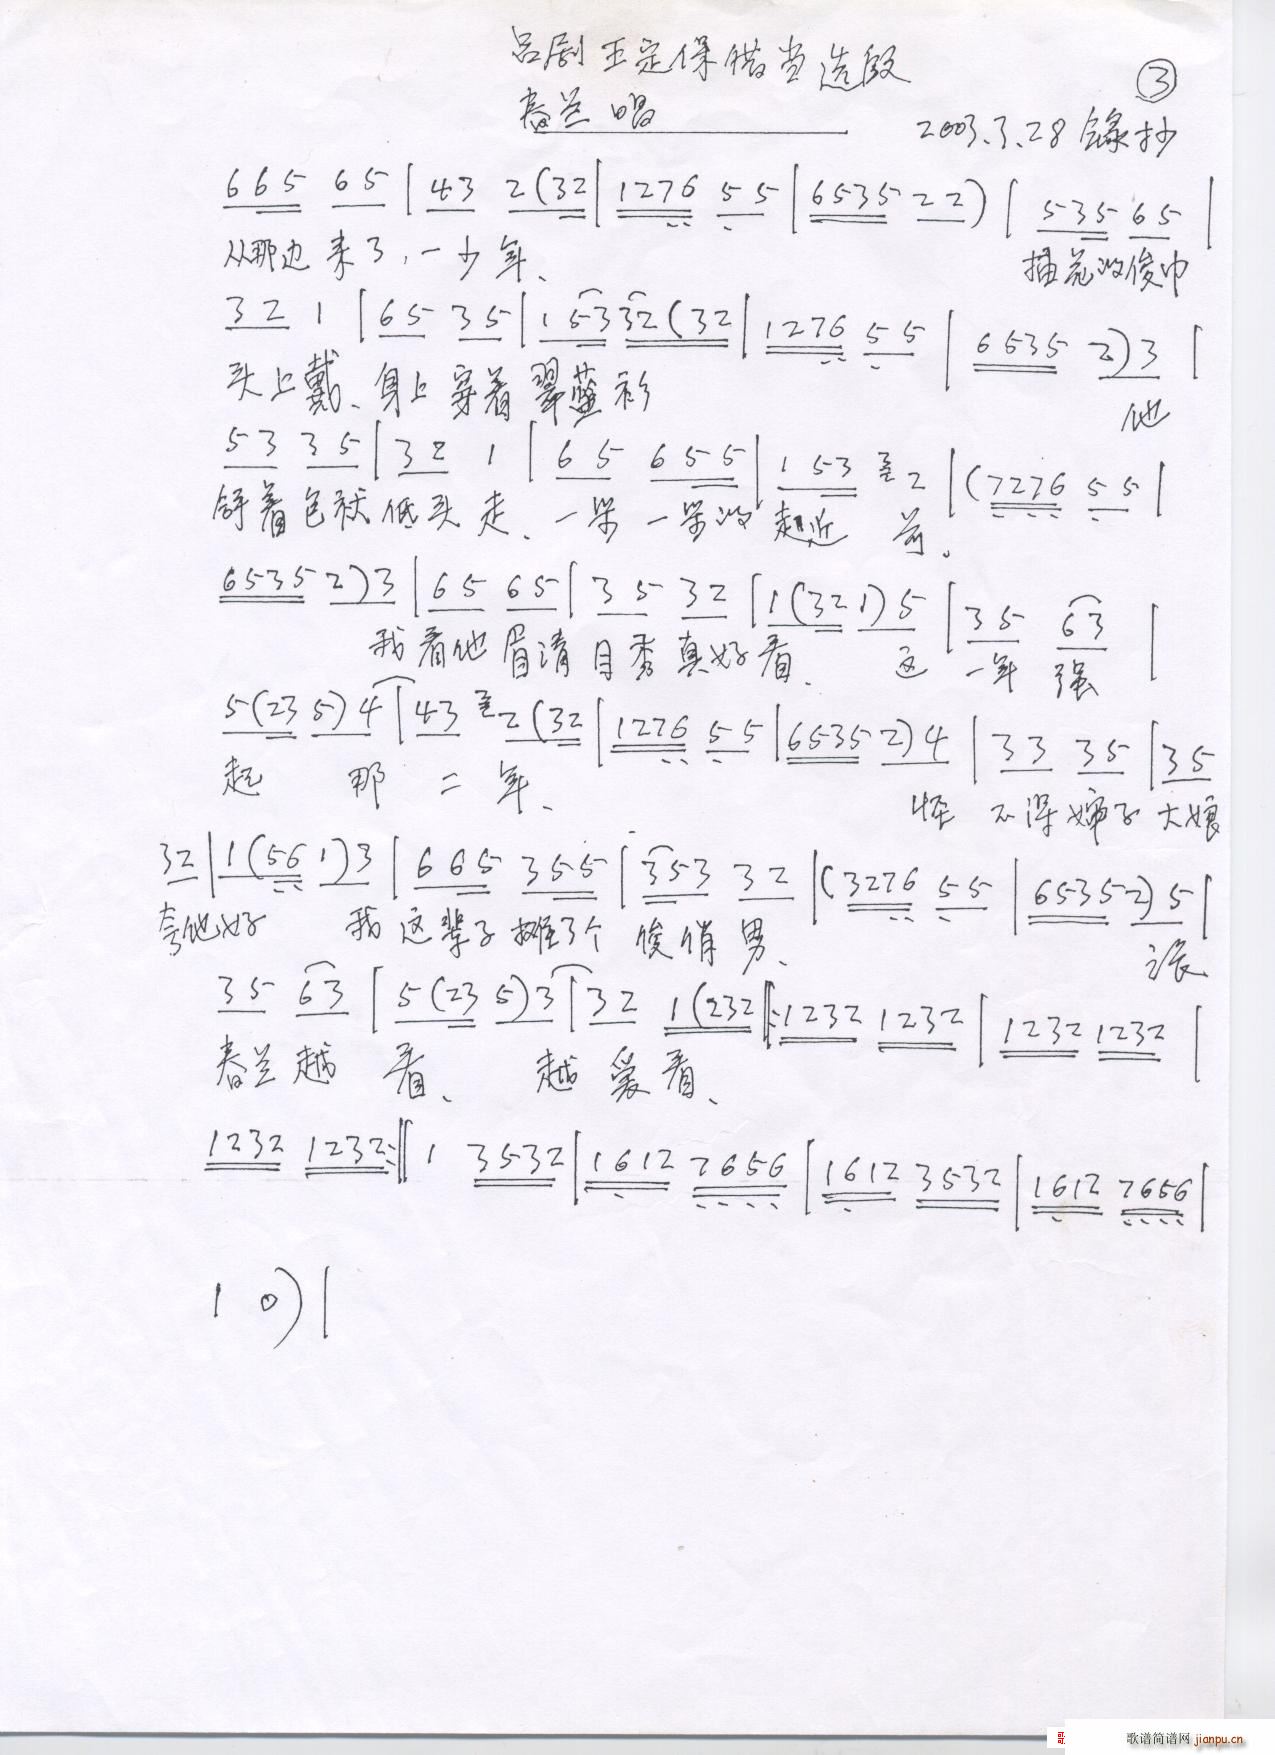 吕剧 王定保借当选段
③
春兰 唱
2003.3.28 录抄
6 6 5 6 5 | 4 3 2 (3 2 | 1 2 7 6 5 5 | 6 5 3 5 2 2 ) | 5 3 5 6 5 |
从那边来了,一少年、 插花的俊巾
3 2 1 | 6 5 3 5 | 1 5 3 3 2 (3 2 | 1 2 7 6 5 5 | 6 5 3 5 2 ) 3 |
头上戴、身上穿着翠蓝衫 他
5 3 3 5 | 3 2 1 | 6 5 6 5 5 | 1 5 3 2 | (7 2 7 6 5 5 |
着包袱低头走、一 一 的 近 前。
6 5 3 5 2 ) 3 | 6 5 6 5 | 3 5 3 2 | 1 (3 2 1 ) 5 | 3 5 6 3 |
我看他眉清目秀真好看、 这 一年 强
5 (2 3 5 ) 4 | 4 3 2 (3 2 | 1 2 7 6 5 5 | 6 5 3 5 2 ) 4 | 3 3 3 5 | 3 5
起 那 二 年、 怪 不得婶子大娘
3 2 | 1 (5 6 1 ) 3 | 6 6 5 3 5 5 | 3 5 3 3 2 | (3 2 7 6 5 5 | 6 5 3 5 2 ) 5 |
夸他好 我这辈子摊了个 俊俏男、
3 5 6 3 | 5 (2 3 5 ) 3 | 3 2 1 (2 3 2 ‖: 1 2 3 2 1 2 3 2 | 1 2 3 2 1 2 3 2 |
春兰越 看、 越 爱看、
1 2 3 2 1 2 3 2 :‖ 1 3 5 3 2 | 1 6 1 2 7 6 5 6 | 1 6 1 2 3 5 3 2 | 1 6 1 2 7 6 5 6 |
1 0 ) |
歌谱简谱网 jianpu.cn